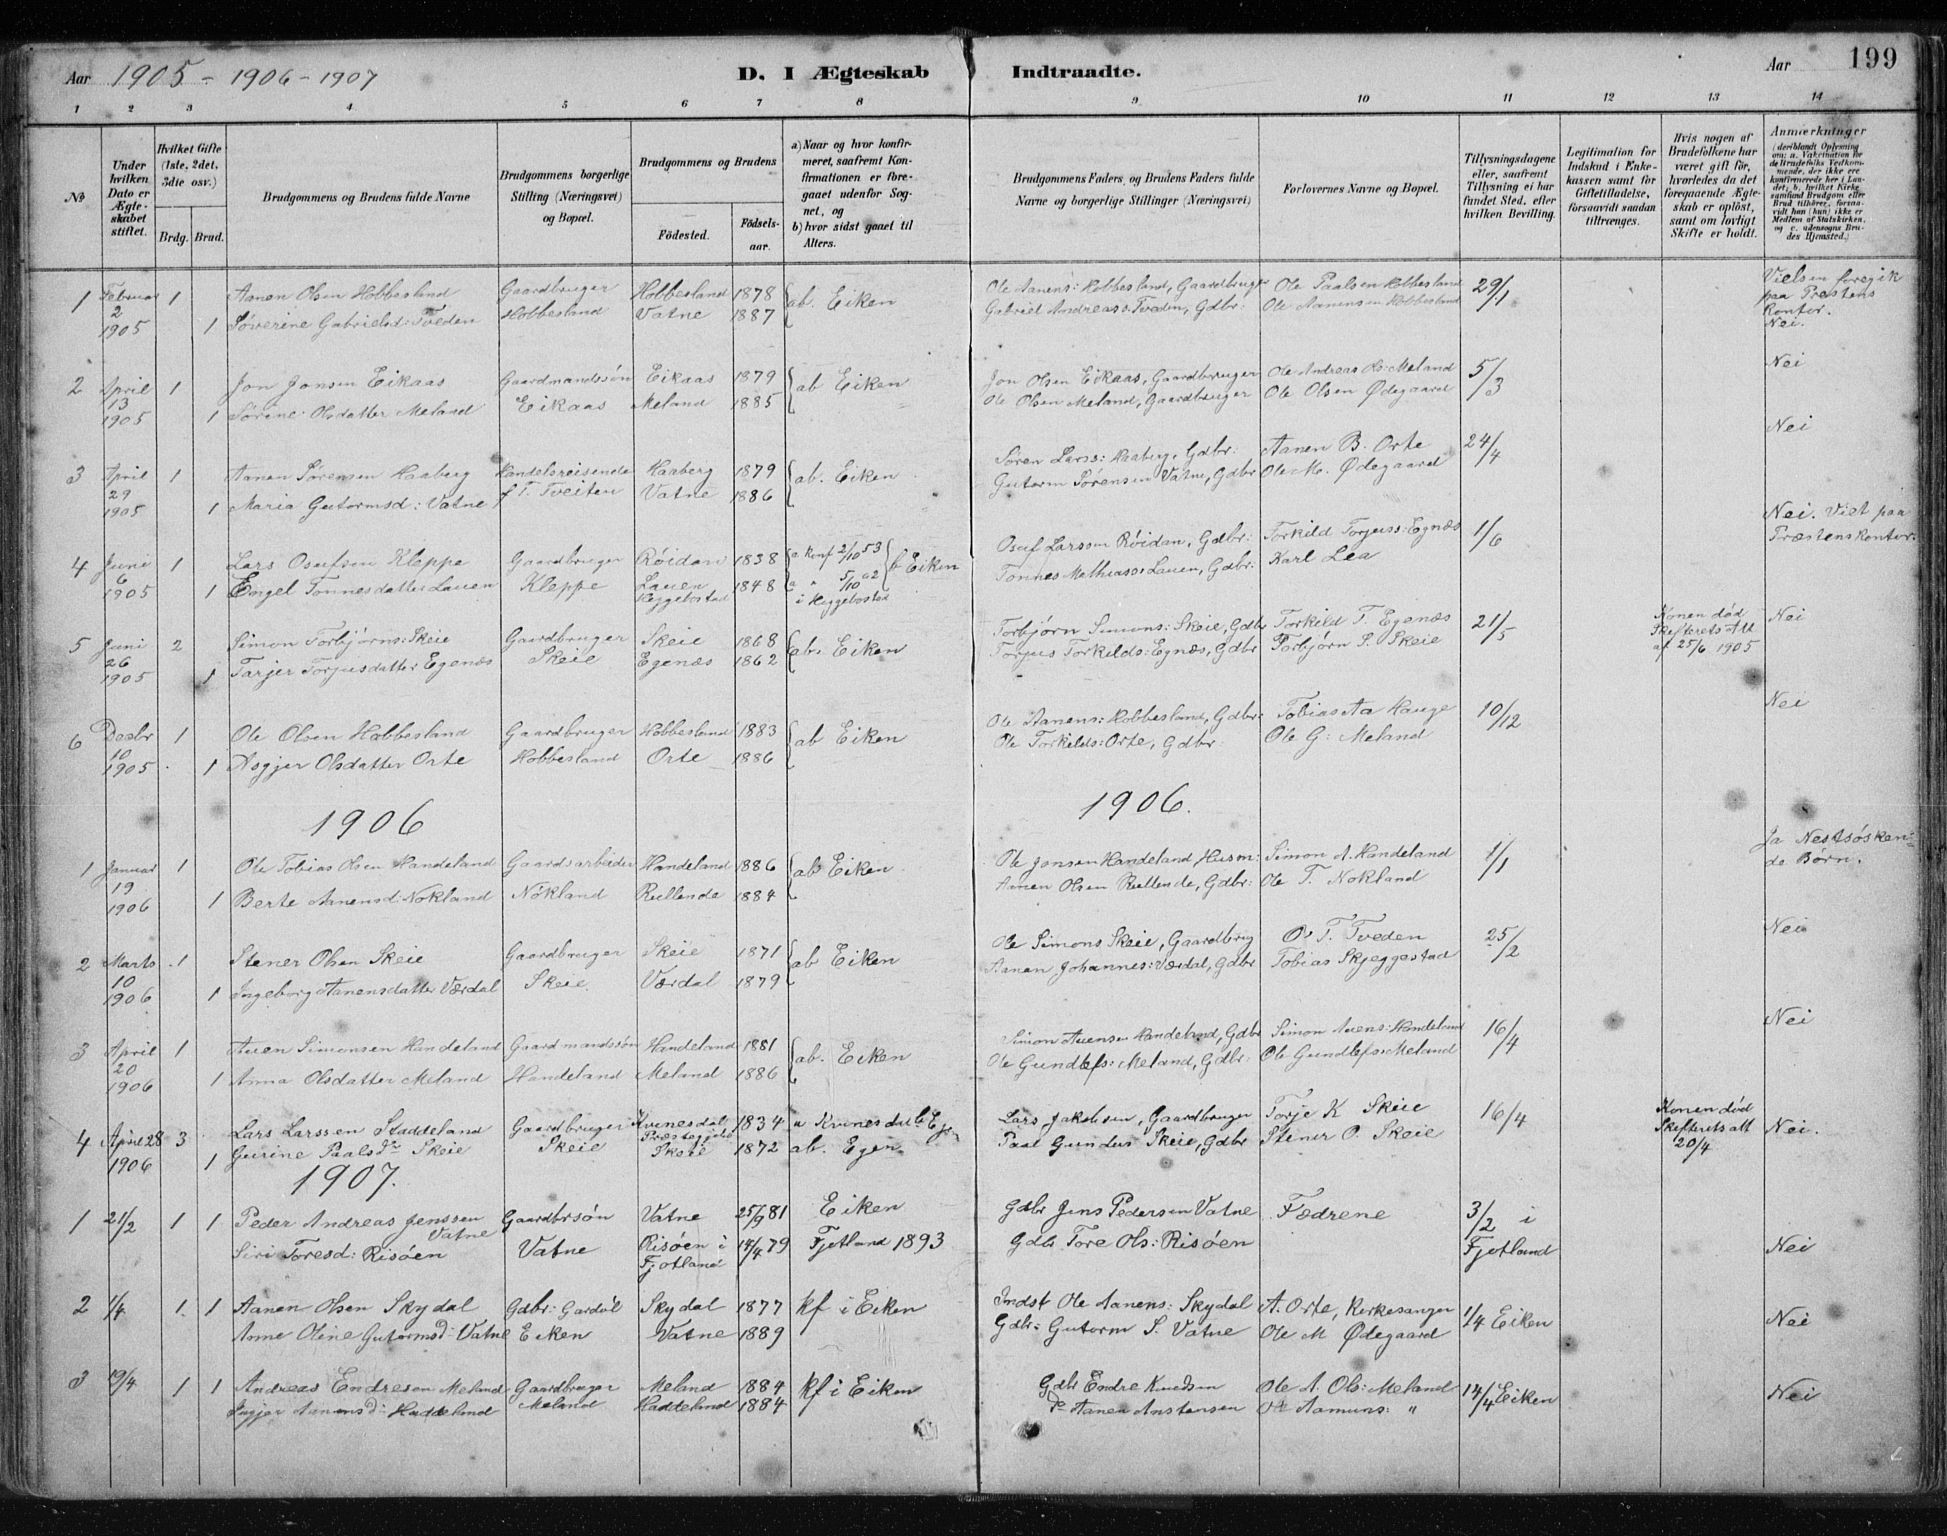 Aar 1905 - 1906 - 1907 D. I Ægteskab Indtraadte. Aar 199
1 2 3 4 5 6 7 8 9 10 11 12 13 14
No
Under hvilken Dato er Ægteskabet stiftet.
Hvilket Gifte (1ste, 2det, 3die osv.)
Brdg. Brud.
Brudgommens og Brudens fulde Navne
Brudgommens borgerlige Stilling (Næringsvei) og Bopæl.
Brudgommens og Brudens
Fødested. Fødselsaar.
a) Naar og hvor konfirmeret, saafremt Konfirmationen er foregaaet udenfor Sognet, og
b) hvor sidst gaaet til Alters.
Brudgommens Faders, og Brudens Faders fulde Navne og borgerlige Stillinger (Næringsvei)
Forlovernes Navne og Bopæl.
Tillysningsdagene eller, saafremt Tillysning ei har fundet Sted, efter hvilken Bevilling.
Legitimation for Indskud i Enkekassen samt for Giftetilladelse, forsaavidt saadan tiltrænges.
Hvis nogen af Brudefolkene har været gift før, hvorledes da det foregaaende Ægteskab er opløst, samt om lovligt Skifte er holdt.
Anmærkninger (deriblandt Oplysning om: a. Vakcination for de Brudefolks Vedkommende, der ikke ere konfirmerede her i Landet; b. hvilket Kirkesamfund Brudgom eller Brud tilhører, forsaavidt han (hun) ikke er Medlem af Statskirken, og c. udensogns Brudes Hjemsted.)
1 Februar 1 Aanen Olsen Hobbesland Gaardbruger Hobbesland 1878 ab. Eiken Ole Aanens: Hobbesland, Gaardbruger Ole Paalsen Hobbesland 29/1 Vielsen foregik paa Prestens Kontor.
2 1905 1 Søverine Gabrielsd: Tveden Hobbesland Vatne 1887 Gabriel Andreass: Tveden, Gdbr: Ole Aanensen Hobbesland Nei.
2 April 1 Jon Jonsen Eikaas Gaardmandssøn Eikaas 1879 ab Eiken Jon Olsen Eikaas, Gaardbruger Ole Andreas Ols: Meland 5/3 Nei
13 1905 1 Sørine Olsdatter Meland Eikaas Meland 1885 Ole Olsen Meland, Gaardbruger Ole Olsen Ødegaard
3 April 1 Aanen Sørensen Haaberg Handelsreisende Haaberg 1879 ab. Eiken Søren Lars: Haaberg, Gdbr: Aanen B. Orte 24/4 Nei
29 1905 1 Maria Gutormsd: Vatne f T. Tveiten Vatne 1886 Gutorm Sørensen Vatne, Gdbr Ole M. Ødegaard
4 Juni 1 Lars Osufsen Kleppe Gaardbruger Røidan 1838 a konf 2/10 53 b Eiken Osuf Larssen Røidan, Gdbr: Torkild Torjuss: Egnæs 1/6 Nei. Viet paa Præstens kontor.
6 1905 1 Engel Tønnesdatter Lauen Kleppe Lauen Hæggebostad 1848 a " 5/10 62 i Hæggebostad Tønnes Mathiass: Lauen, Gdbr: Karl Lea
5 Juni 2 Simon Torbjørns: Skeie Gaardbruger Skeie 1868 ab. Eiken Torbjørn Simons: Skeie, Gdbr Torkild T. Egenæs 21/5 Konen død Skifterets Att af 25/6 1905 Nei
26 1905 1 Tarjer Torjusdatter Egenæs Skeie Egenæs 1862 Torjus Torkilds: Egnæs, Gdbr Torbjørn P. Skeie
6 Desbr 1 Ole Olsen Hobbesland Gaardbruger Hobbesland 1883 ab Eiken Ole Aanens: Hobbesland, Gdbr: Tobias Aa Hauge 10/12 Nei
10 1905 1 Asgjer Olsdatter Orte Hobbesland Orte 1886 Ole Torkilds: Orte, Gdbr: Ole G: Meland
1906 1906.
1 Januar 1 Ole Tobias Olsen Handeland Gaardsarbeider Handeland 1886 ab Eiken Ole Jonsen Handeland Husm: Simon A. Handeland 1/1 Ja Nestsøskende Børn.
19 1906 1 Berte Aanensd: Nøkland Nøkland Rullende 1884 Aanen Olsen Rullende, Gdbr: Ole T. Nøkland
2 Marts 1 Stener Olsen Skeie Gaardbruger Skeie 1871 ab Eiken Ole Simons Skeie, Gaardbrug O. T. Tveden 25/2 Nei
10 1906 1 Ingeborg Aanensdatter Værdal Skeie Værdal 1879 Aanen Johannes: Værdal, Gdbr Tobias Skjeggestad
3 April 1 Auen Simonsen Handeland Gaardmandssøn Handeland 1881 ab. Eiken Simon Auensen Handeland, Gdbr Simon Auens: Handeland 16/4 Nei
20 1906 1 Anna Olsdatter Meland Handeland Meland 1886 Ole Gundlefs: Meland, Gdbr: Ole Gundlefs: Meland
4 April 28 3 Lars Larssen Staddeland Gaardbruger Kvinesdal Præstegjeld 1834 a Kvinesdal Lars Jakobsen, Gaardbruger Torje K Skeie 16/4 Konen død Skifterets att 20/4 Nei.
1906 1 Gurine Paalsdr Skeie Skeie Skeie 1872 ab. Paal Gundus Skeie, Gdbr Stener O. Skeie
1907.
1 21/2 1 1 Peder Andreas Jenssen Vatne Gaardbrsøn Vatne 25/9 81 Eiken Gdbr Jens Pedersen Vatne Fædrene 3/2 i Fjotland
Siri Toresd: Risøen Vatne Risøen i Fjotland 14/4 79 Fjotland 1893 Gdbr Tore Ols: Risøen Nei
2 1/4 1 1 Aanen Olsen Skydal Gdbr: Gardøl Skydal 1877 kf i Eiken Indst Ole Aanens: Skydal A. Orte, Kirkesanger 1/4 Eiken Nei
Anne Oline Gutormsd: Vatne Eiken Vatne 1889 Gdbr: Gutorm S. Vatne Ole M Ødegaard
3 19/4 1 1 Andreas Endresen Meland Gaardbruger Meland 1884 kf i Eiken Gdbr Endre Knudsen Ole A. Ols: Meland 14/4 Eiken Nei
Ingjer Aanensd: Haddeland Meland Haddeland 1884 Do Aanen Anstensen Ole Aamuns: "